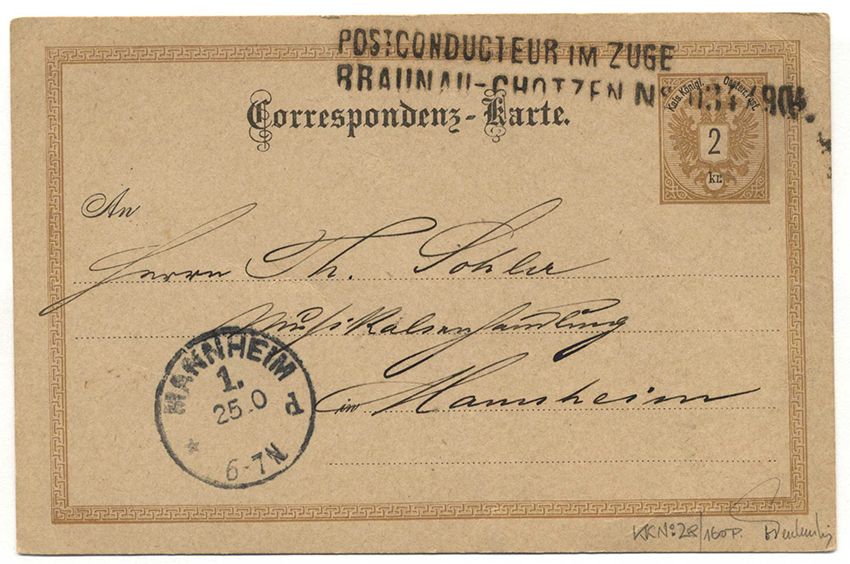 POSTCONDUCTEUR IM ZUGE
BRAUNAU-CHOTZEN No
Kais. Königl. Oesterr. Post
2
kr.
Correspondenz-Karte.
An
Herrn Th. Sohler
Musikalienhandlung
in Mannheim
MANNHEIM
1.
25.0
d
6-7N
KKNo28/160P.